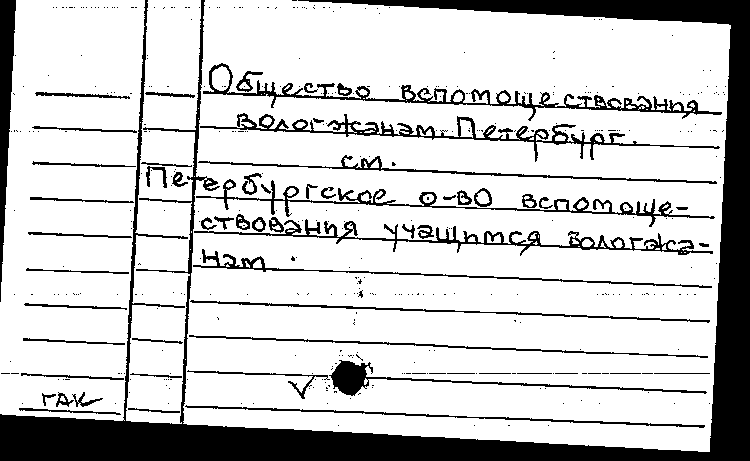 Общество вспомоществования
вологжанам. Петербург.
см.
Петербургское о-во вспомоще-
ствования учащимся вологжа-
нам.
ГАК